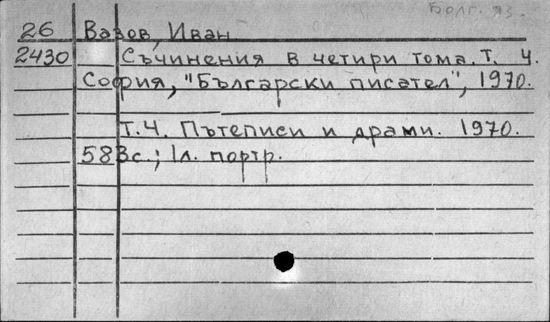 Болг. яз.
26 Вазов, Иван
2430 Съчинения в четири тома. Т. 4.
София, "Български писател", 1970.
Т.4. Пътеписи и драми. 1970.
583с.; 1л. портр.